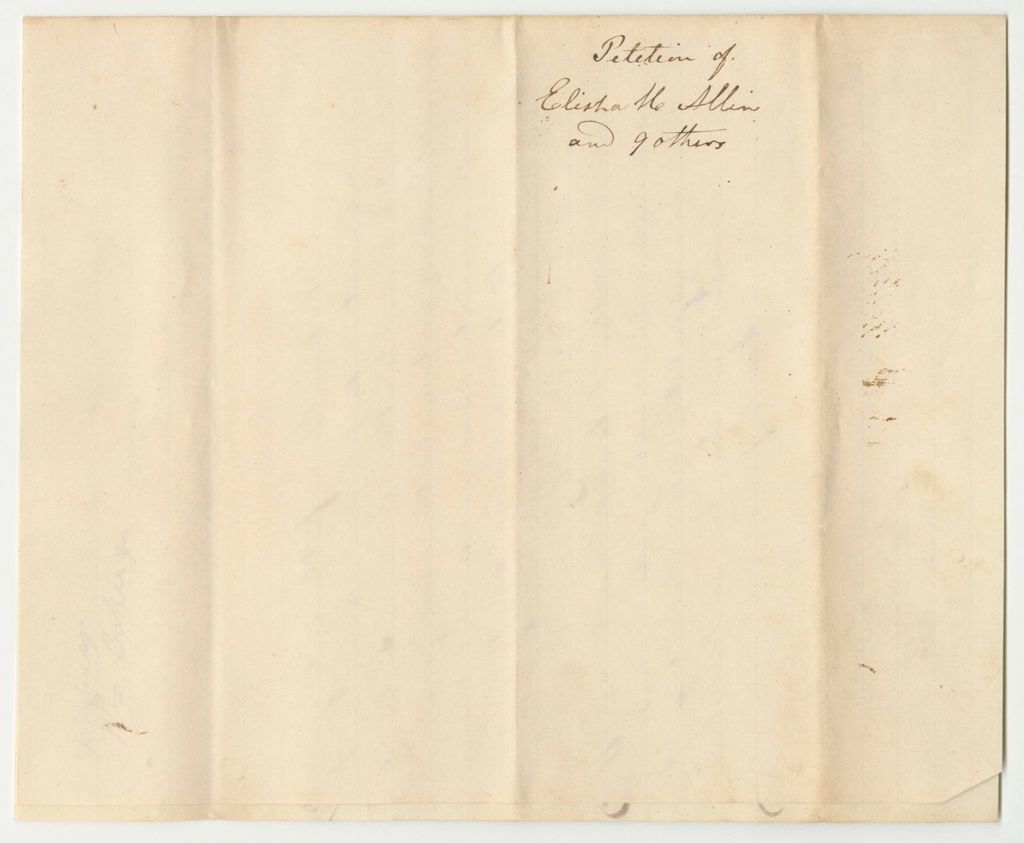 Petition of
Elisha H Allin
and 9 others